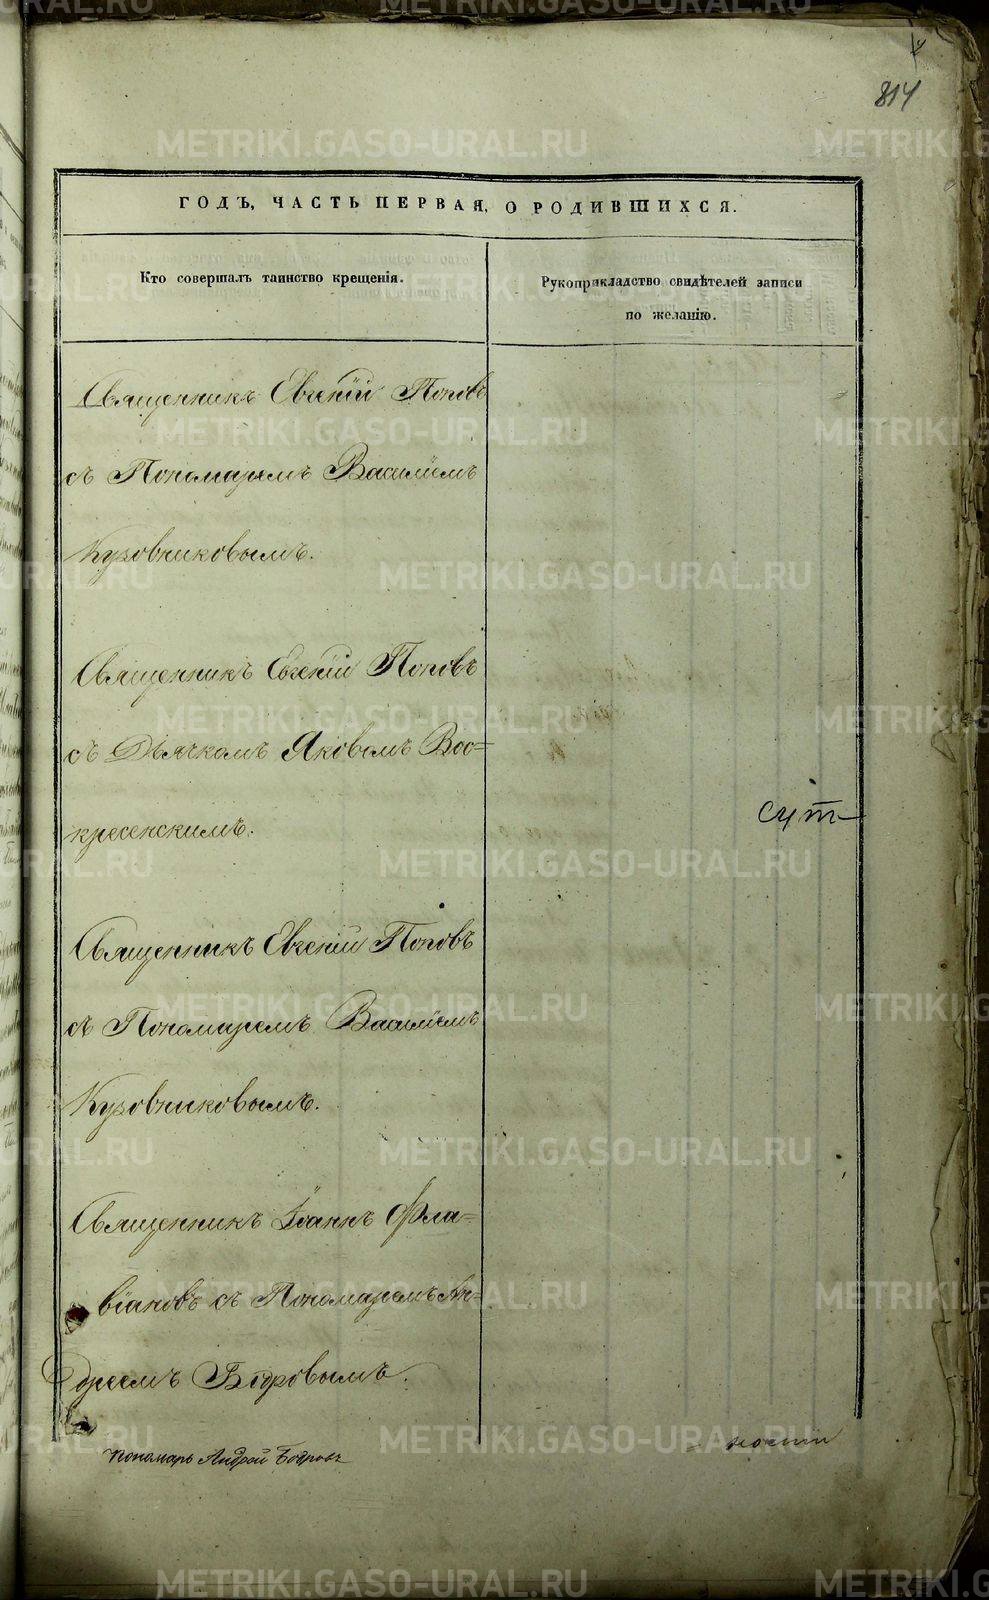 814
ГОДЪ, ЧАСТЬ ПЕРВАЯ, О РОДИВШИХСЯ.
Кто совершалъ таинство крещенія.
Рукоприкладство свидѣтелей записи
по желанію.
Священникъ Евгеній Поповъ
съ Пономаремъ Василіемъ
Кузовниковымъ.
Священникъ Евгеній Поповъ
съ Дьячкомъ Яковомъ Вос=
кресенскимъ.
Священникъ Евгеній Поповъ
съ Пономаремъ Василіемъ
Кузовниковымъ.
Священникъ Іоаннъ Фла=
віановъ съ Пономаремъ Ан=
дреемъ Бобровымъ.
Пономарь Андрей Бобровъ
METRIKI.GASO-URAL.RU